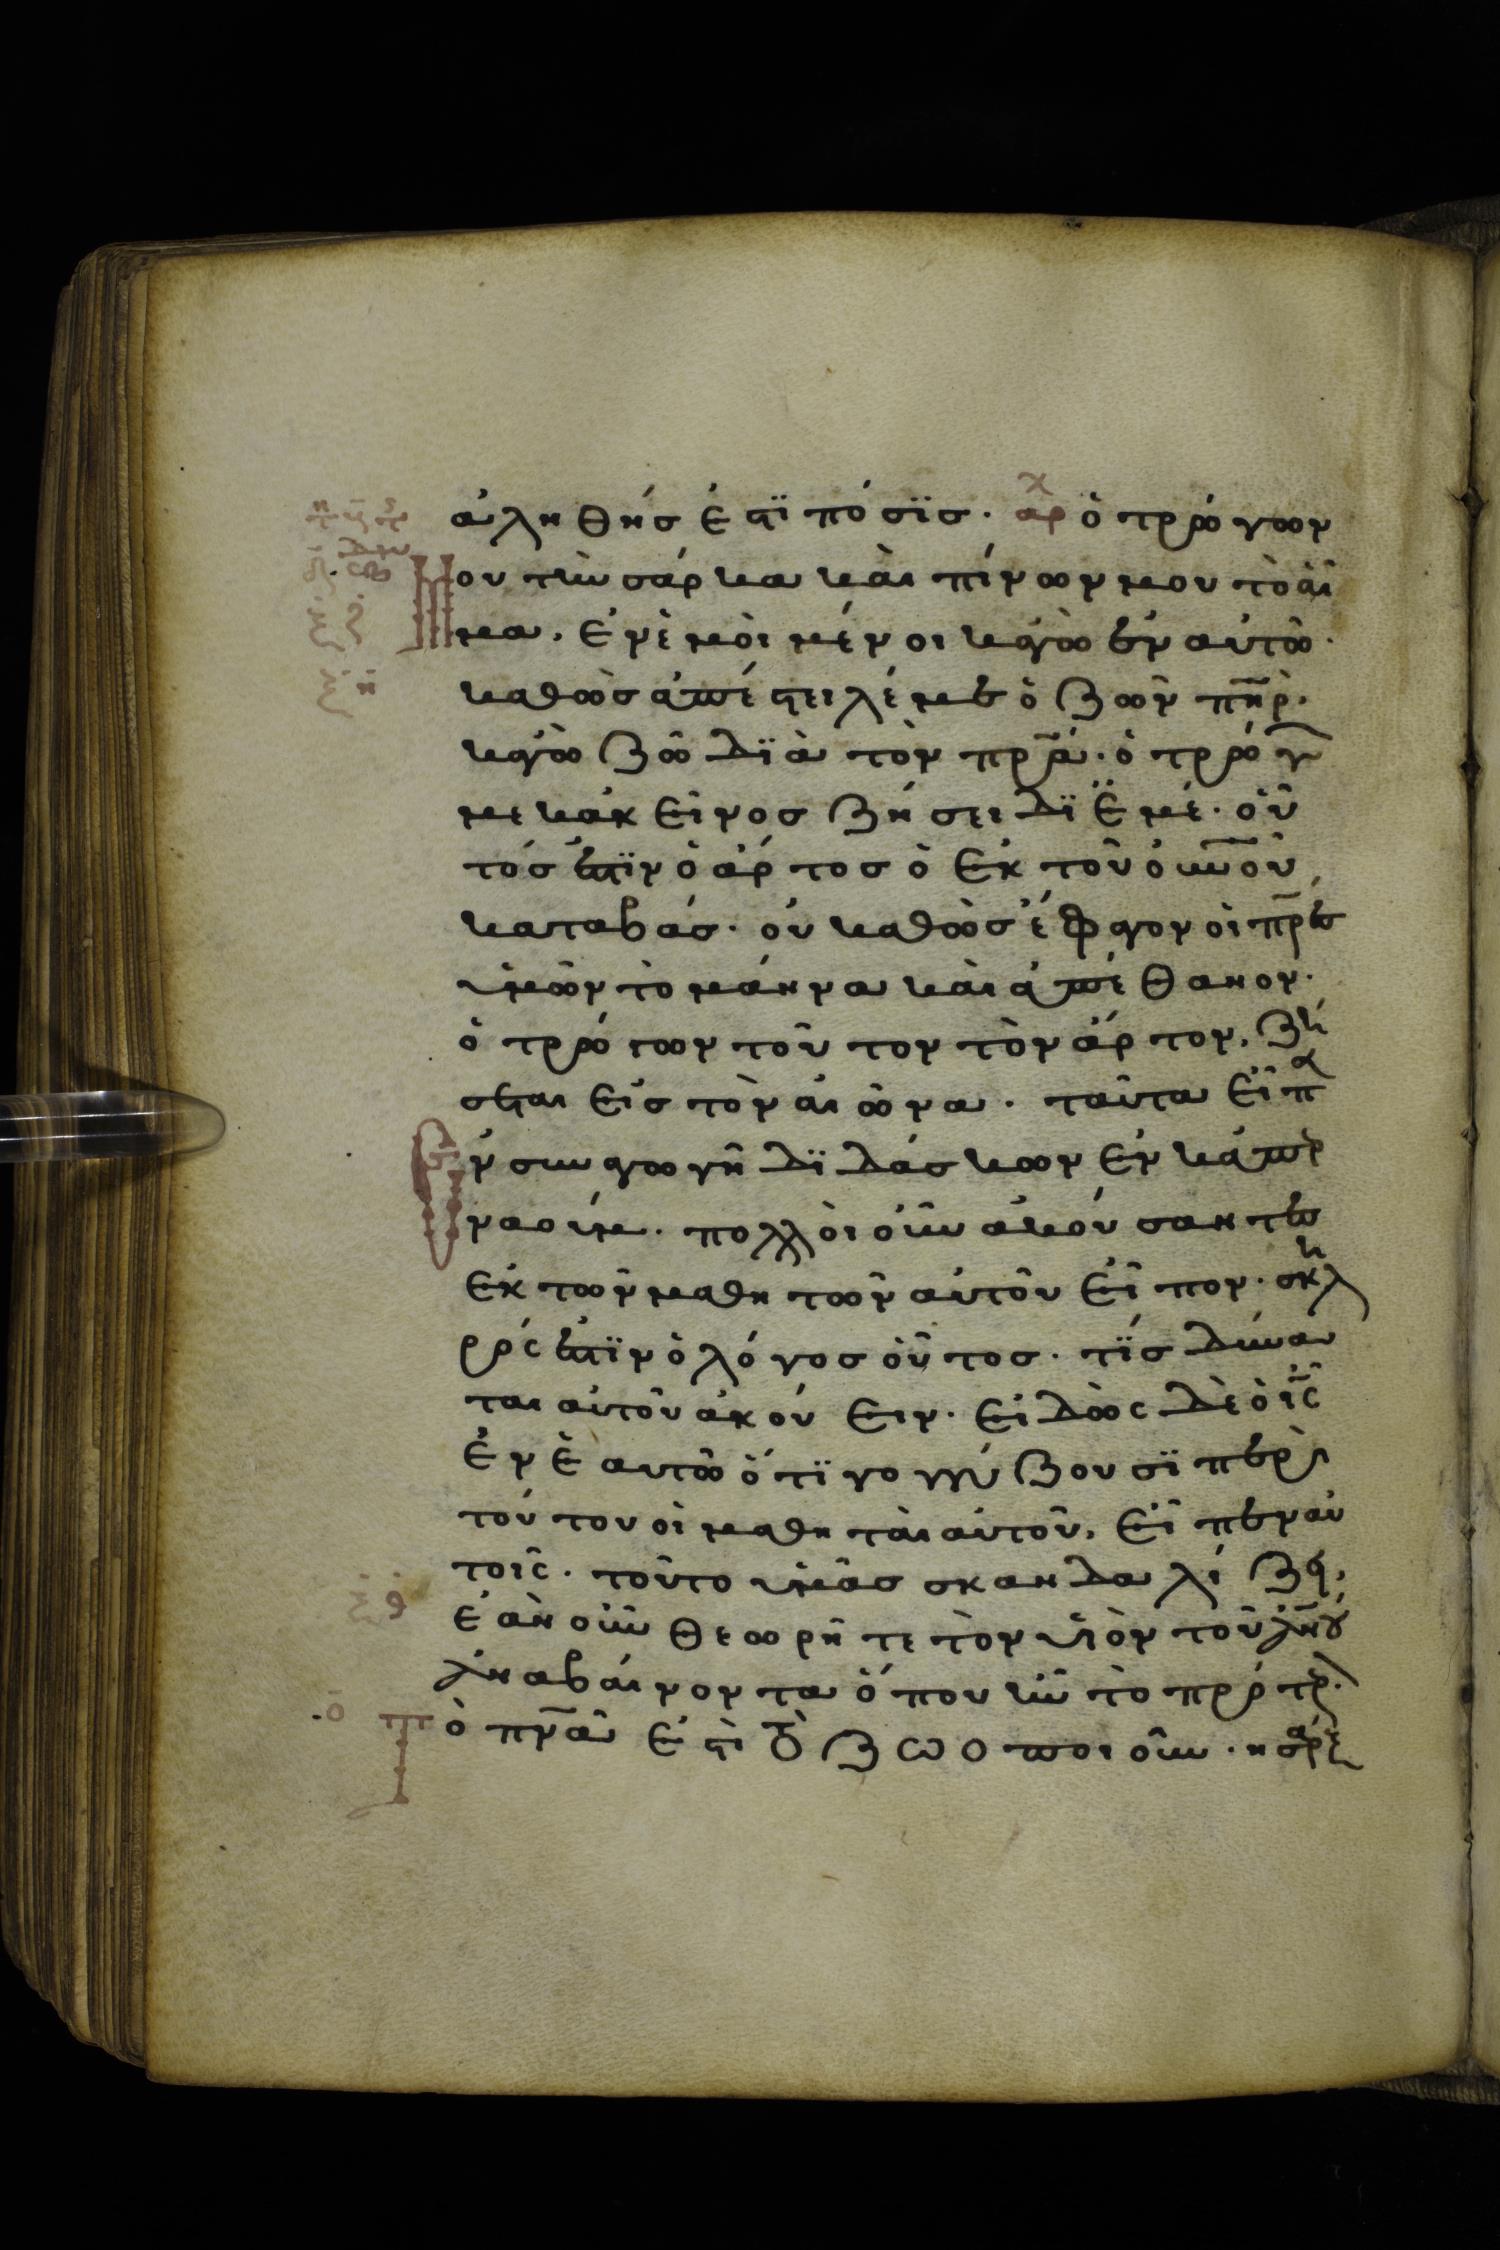 ἀληθήσ ἐστϊ πόσϊσ· αρχ ὁ τρώγων
ου τὴν σάρκα καὶ πίνων μου τὸ αἷ
μα, ἐν ἐμοὶ μένει κἀγὼ ἐν αὐτῶ·
καθὼσ ἀπέστειλέ με ὁ ζῶν πη̅ρ·
κἀγὼ ζῶ δϊὰ τὸν πρ̅α· ὁ τρώγ
με κἀκεῖνοσ ζήσει δϊ ἐμέ· οὗ
τόσ ἐστϊν ὁ ἄρτοσ ὁ ἐκ τοῦ οὐν̅οῦ
καταβάσ· οὐ καθὼσ ἔφαγον οἱ πρ̅εσ
ὑμῶν τὸ μάννα καὶ ἀπέθανον·
ὁ τρώγων τοῦτον τὸν ἄρτον, ζή
σεται εἰσ τὸν αἰῶνα· ταῦτα εἶπ
ἐν συναγωγῆ δϊδάσκων ἐν καπερ
ναούμ· πολλοὶ οὖν ἀκούσαντεσ
ἐκ τῶν μαθητῶν αὐτοῦ εἶπον· σκλη
ρός ἐστϊν ὁ λόγοσ οὗτοσ· τίσ δύνα
ται αὐτοῦ ἀκούειν· εἰδὼς δὲ ὁ ις̅
ἐν ἑαυτῶ ὅτϊ γογγύζουσϊ περὶ
τούτου οἱ μαθηταὶ αὐτοῦ, εἶπεν αὐ
τοῖς· τοῦτο ὑμᾶσ σκανδαλίζει,
ἐὰν οὖν θεωρῆτε τὸν υἱὸν τοῦ αν̅ου
ἀναβαίνοντα ὅπου ἦν τὸ πρότερ·
ὸ πν̅α ἐστὶ τὸ ζωοποιοῦν· η σὰρξ
ξζ
ξη
ξθ
ο